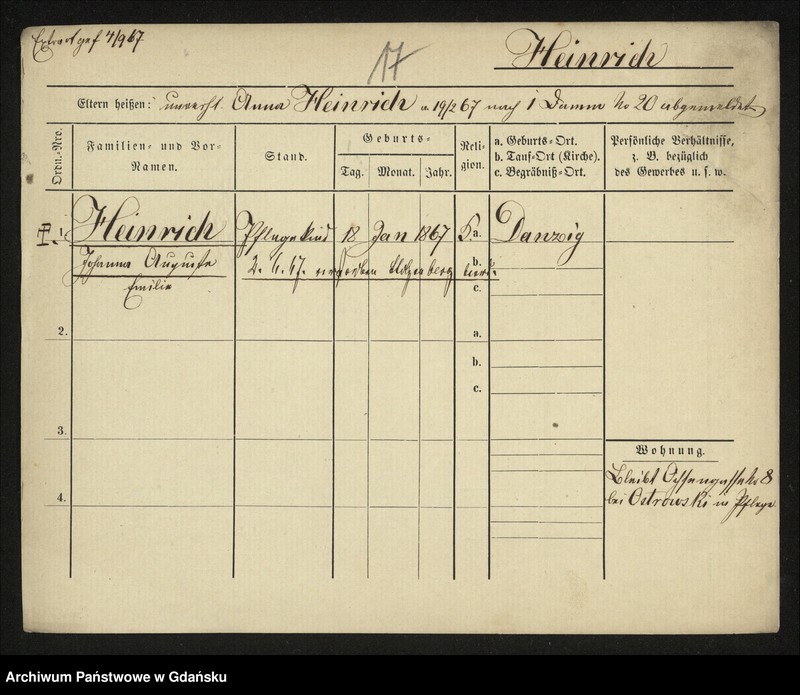 Extract gef 4/9 67
17
Heinrich
Eltern heißen: unvereh. Anna Heinrich u. 19/2 67 nach 1 Damm No 20 abgemeldet
Ordn.-Nro.
Familien- und Vor-
Namen.
Stand.
Geburts-
Tag. Monat. Jahr.
Reli-
gion.
a. Geburts-Ort.
b. Tauf-Ort (Kirche).
c. Begräbniß-Ort.
Persönliche Verhältnisse,
z. B. bezüglich
des Gewerbes u. s. w.
I. 1. Heinrich Pflegekind 18 Jan 1867 a. Danzig
Johanna Auguste
Emilie
2. 6. 67. b.
c.
2. a.
b.
c.
3.
Wohnung.
Bleibt Ochsengasse No 8
bei Ostrowski in Pflege
4.
Archiwum Państwowe w Gdańsku